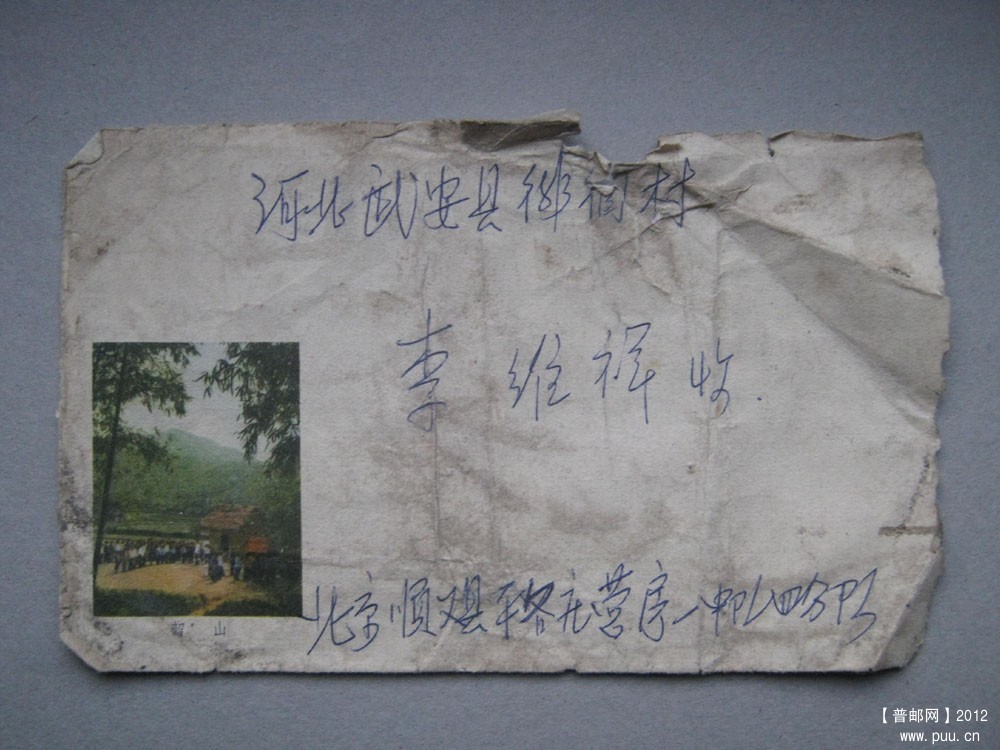 河北武安县徘徊村
李维祥收.
北京顺义县平各庄营房一中队四分队
韶山
【普邮网】2012
www.puu.cn